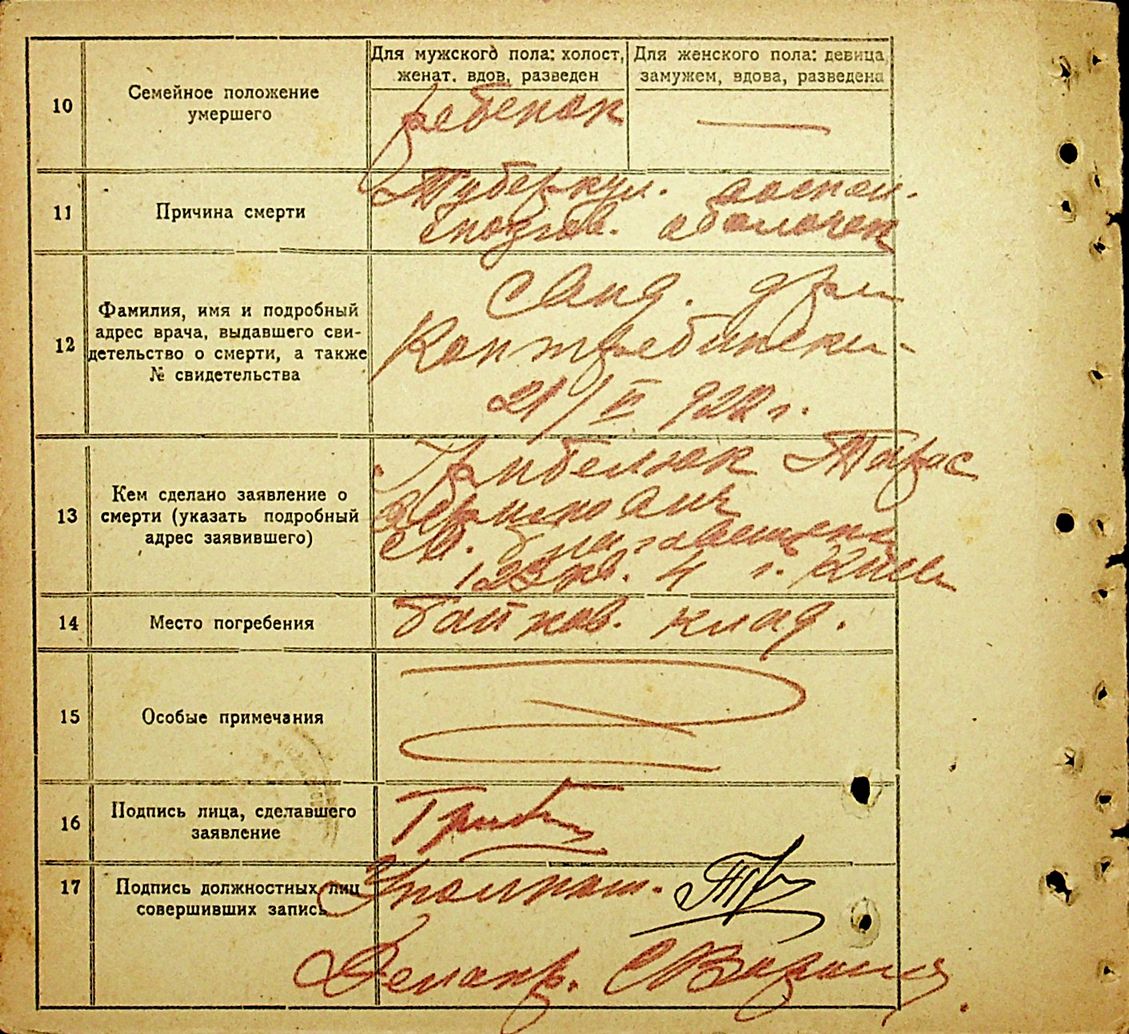 10
Семейное положение
умершего
Для мужского пола: холост,
женат, вдов, разведен
ребенок
Для женского пола: девица,
замужем, вдова, разведена
—
11
Причина смерти
Туберкул. воспал.
мозгов. оболочек
12
Фамилия, имя и подробный
адрес врача, выдавшего сви-
детельство о смерти, а также
№ свидетельства
21/II 922 г.
13
Кем сделано заявление о
смерти (указать подробный
адрес заявившего)
Грибелюк Тарас
123 кв. 4 г. Киев
14
Место погребения
Байков. клад.
15
Особые примечания
16
Подпись лица, сделавшего
заявление
17
Подпись должностных лиц
совершивших запись
Уполном.
Делопр.